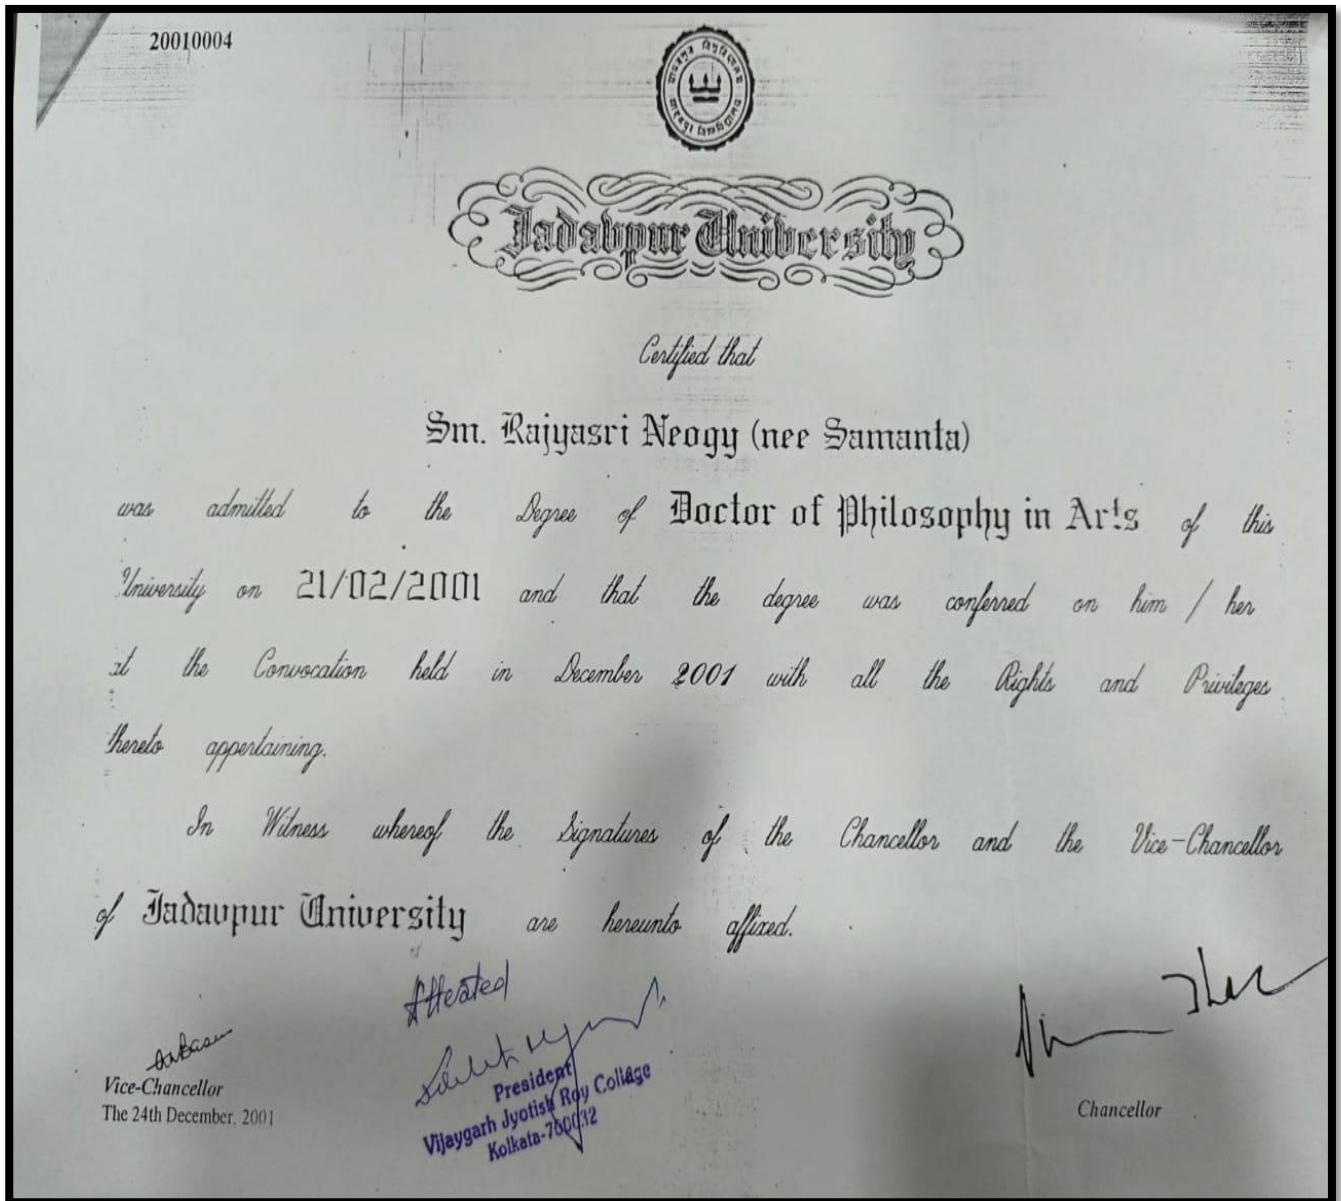 20010004
যাদবপুর বিশ্ববিদ্যালয়
Jadavpur University
Certified that
Sm. Rajyasri Neogy (nee Samanta)
was admitted to the Degree of Doctor of Philosophy in Arts of this
University on 21/02/2001 and that the degree was conferred on him / her
at the Convocation held in December 2001 with all the Rights and Privileges
thereto appertaining.
In Witness whereof the Signatures of the Chancellor and the Vice-Chancellor
of Jadavpur University are hereunto affixed.
Attested
Vice-Chancellor
The 24th December, 2001
President
Vijaygarh Jyotish Roy College
Kolkata-700032
Chancellor